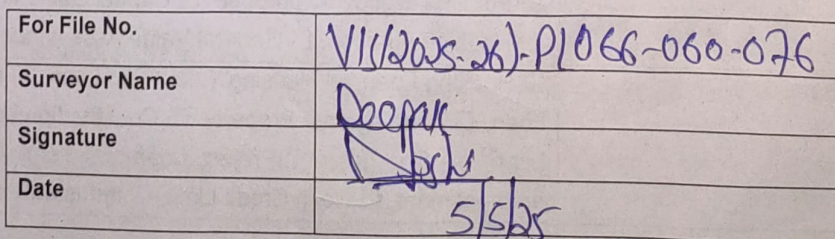 For File No. VIS(2025-26)-PL066-060-076
Surveyor Name Deepak
Signature
Date 5/5/25